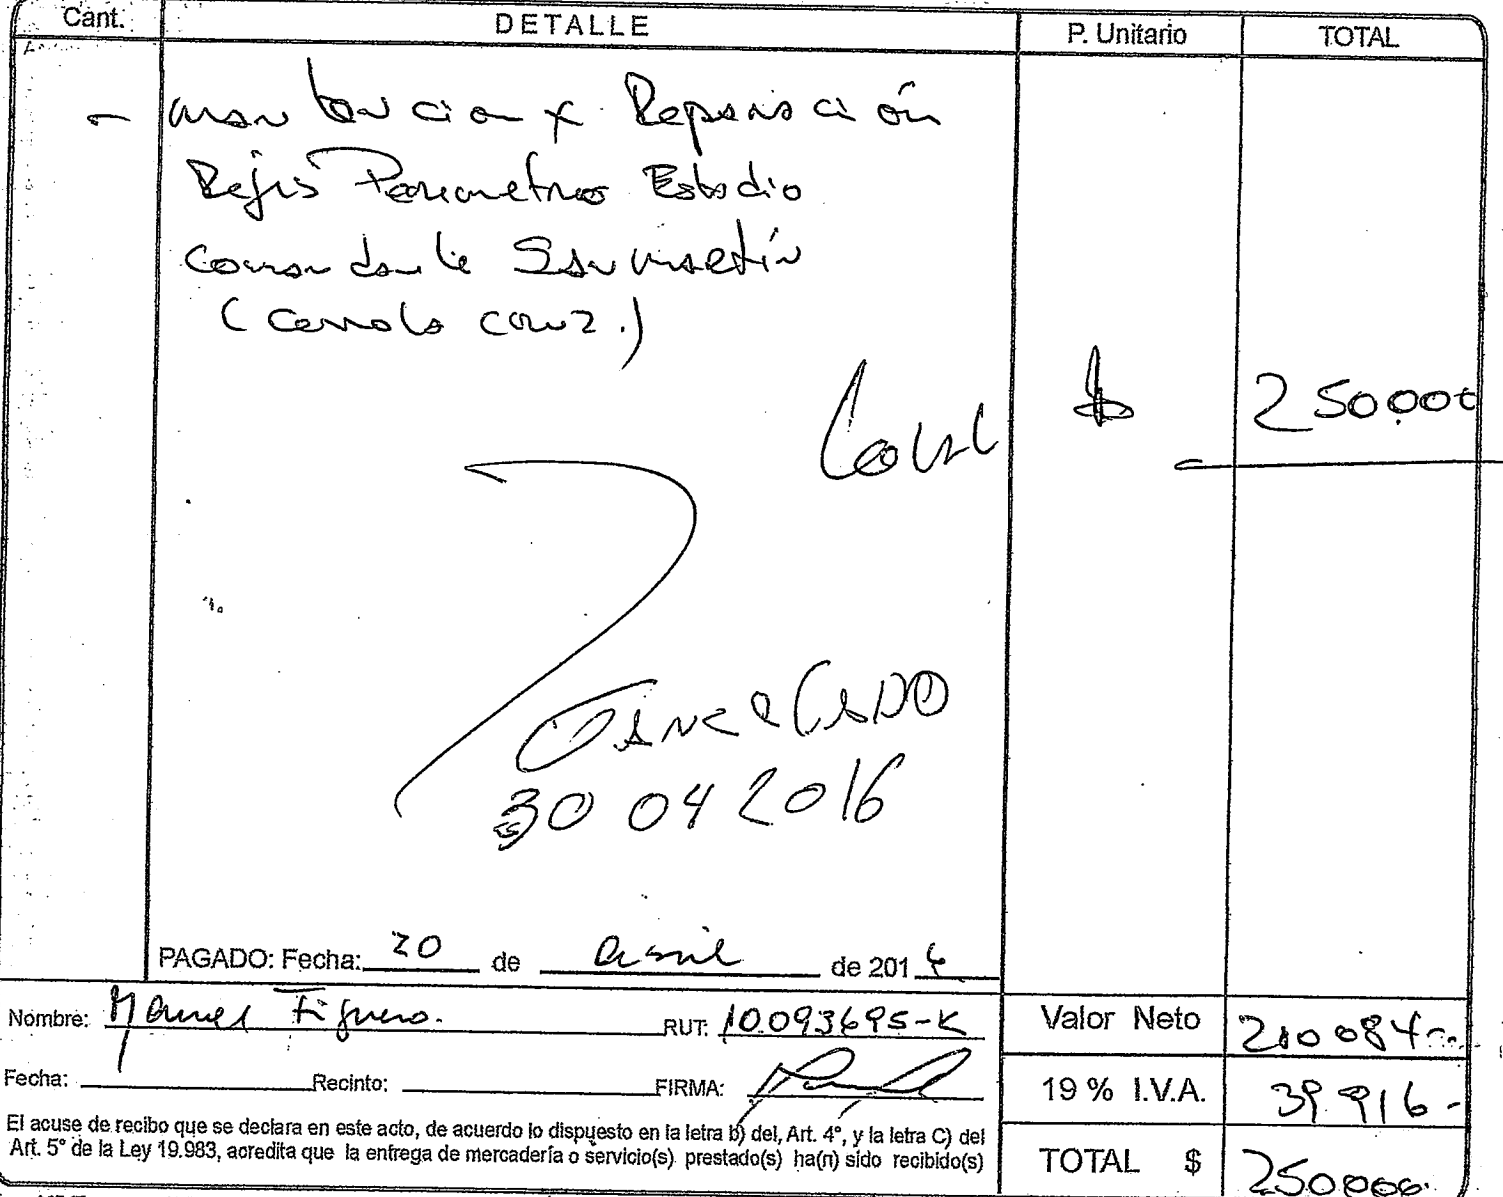 Cant. DETALLE P. Unitario TOTAL
- mantencion x Reparación
Rejas Perimetros Estadio
comandante San martín
(camola cruz.)
Total $ 250000
CANCELADO
30 04 2016
PAGADO: Fecha: 30 de abril de 2016
Nombre: Manuel Figueroa. RUT: 10.093695-K
Valor Neto 210084-
Fecha: Recinto: FIRMA:
19 % I.V.A. 39.916-
El acuse de recibo que se declara en este acto, de acuerdo lo dispuesto en la letra b) del, Art. 4°, y la letra C) del
Art. 5° de la Ley 19.983, acredita que la entrega de mercadería o servicio(s) prestado(s) ha(n) sido recibido(s)
TOTAL $ 250000.